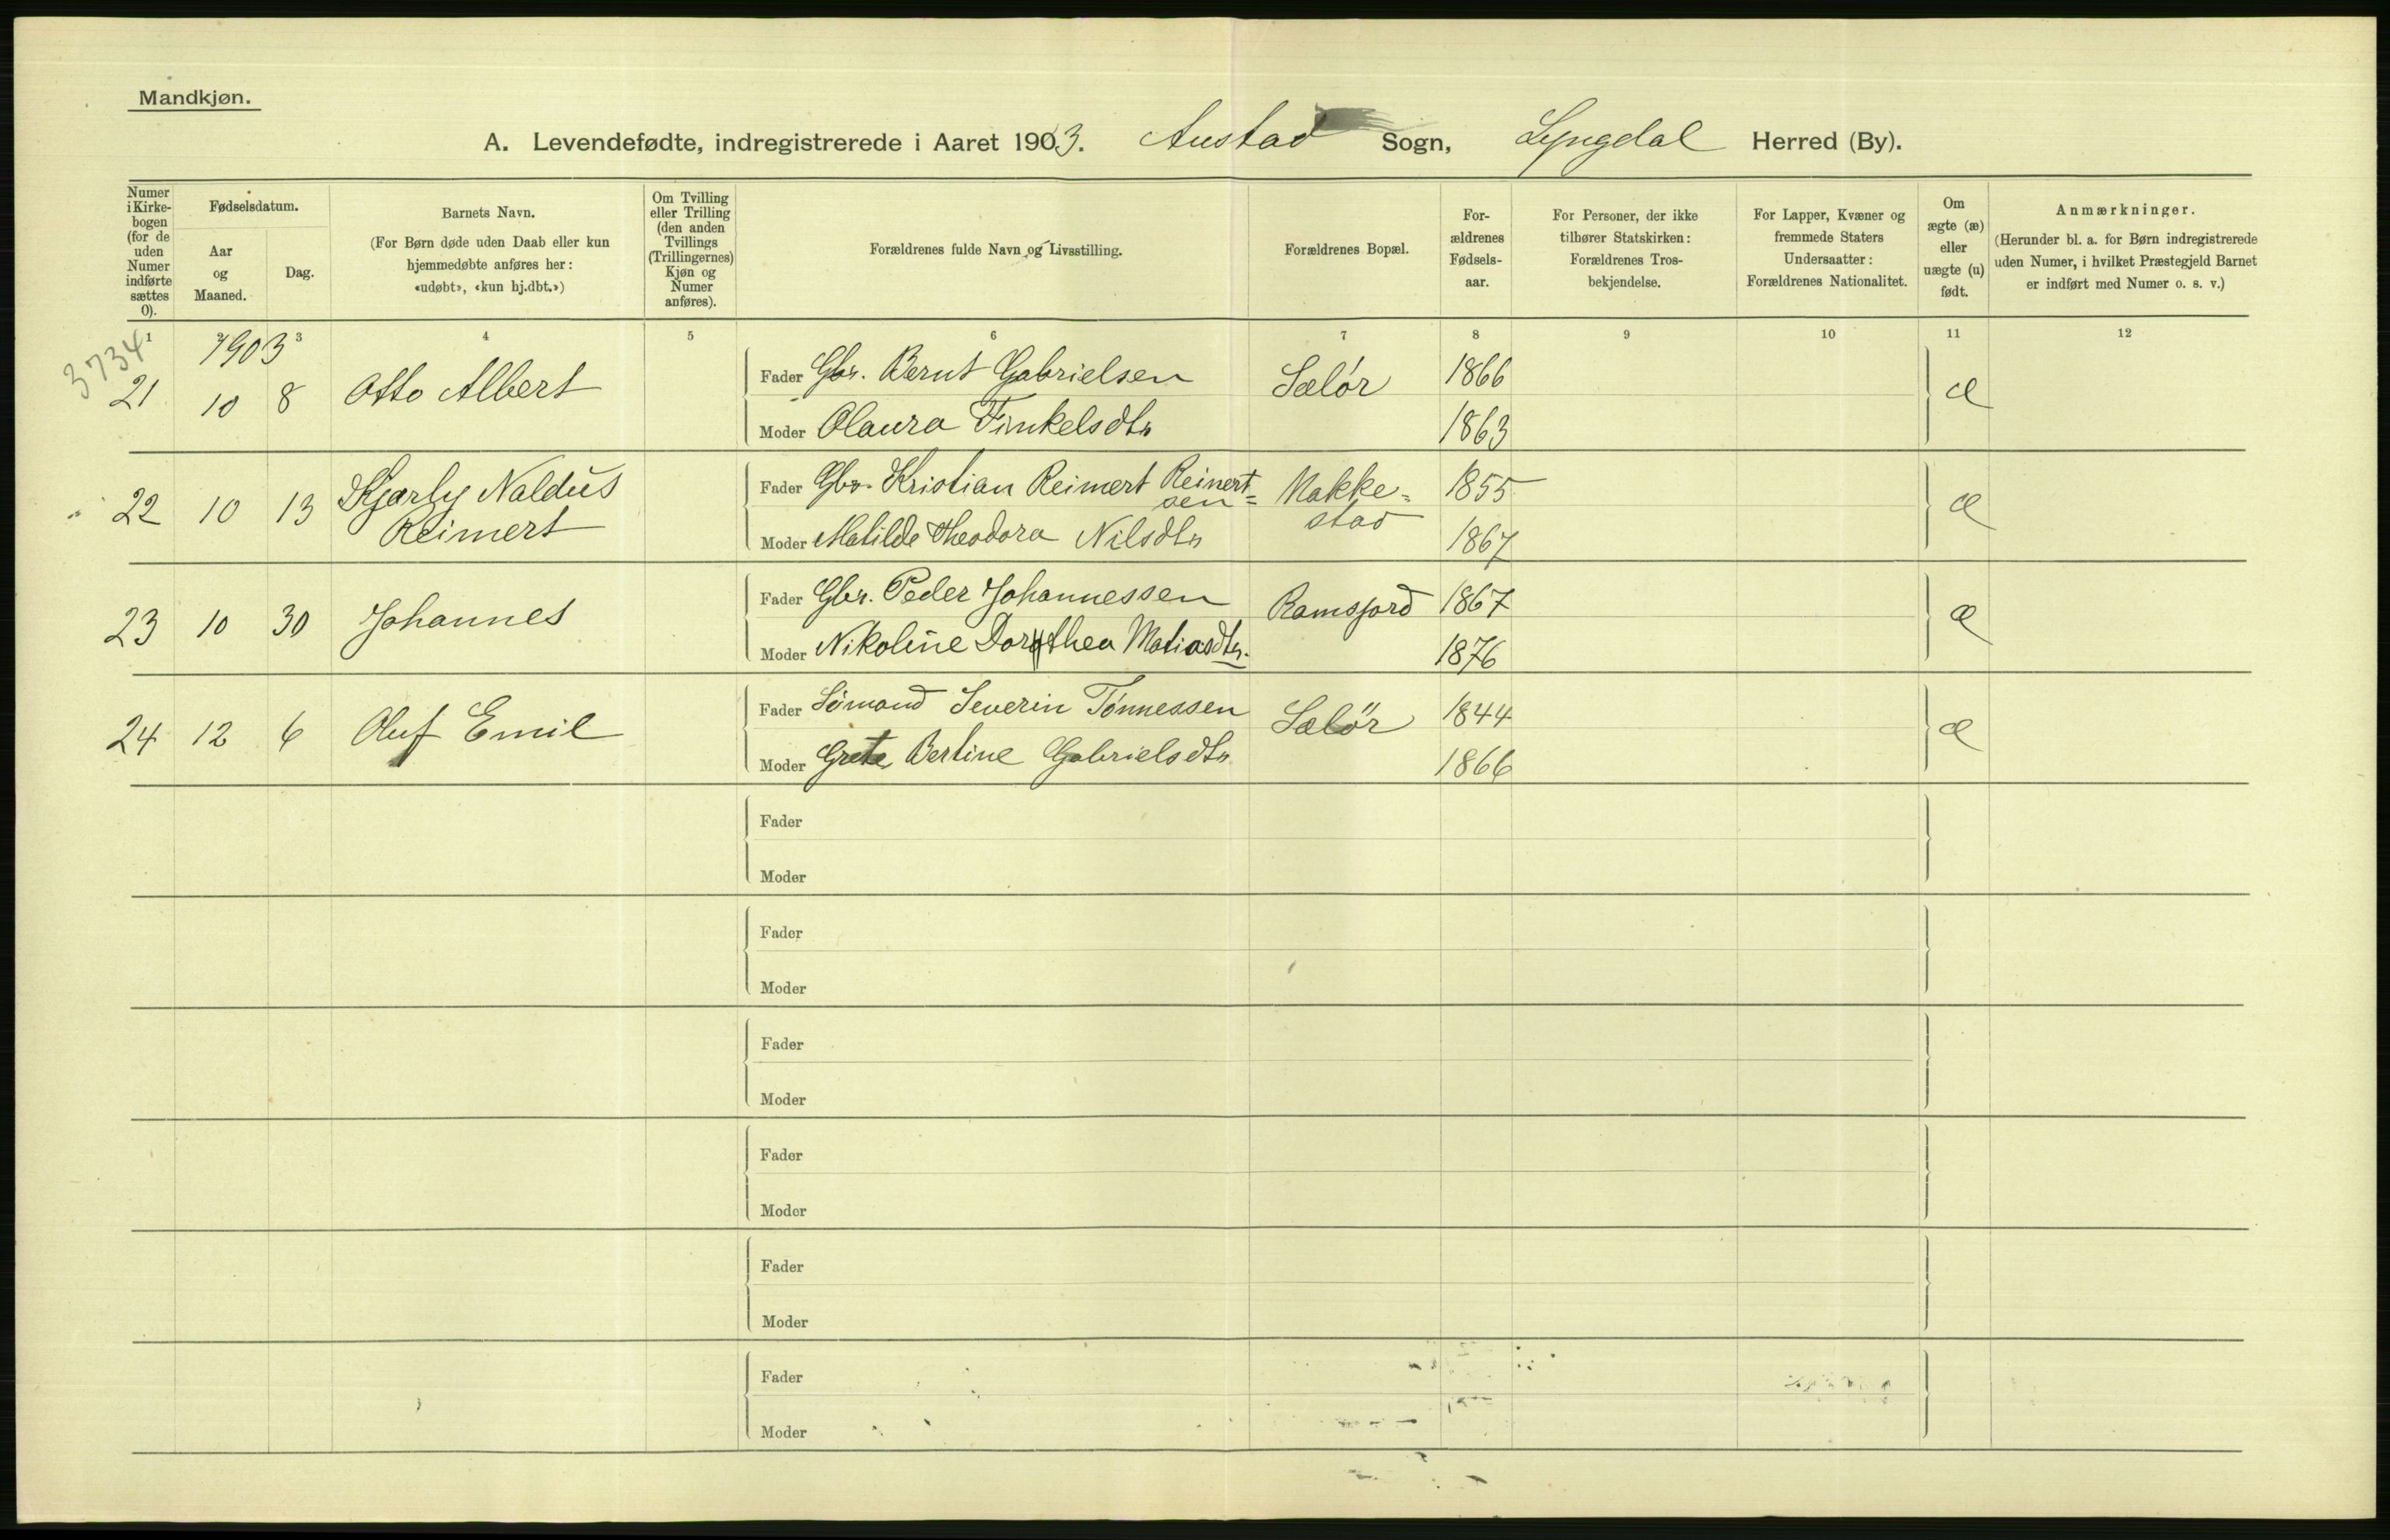 Mandkjøn.
A. Levendefødte, indregistrerede i Aaret 1903. Austad Sogn, Lyngdal Herred (By).
Numer i Kirkebogen (for de uden Numer indførte sættes 0).
Fødselsdatum.
Aar og Maaned.
Dag.
Barnets Navn.
(For Børn døde uden Daab eller kun
hjemmedøbte anføres her:
«udøbt», «kun hj.dbt.»)
Om Tvilling
eller Trilling
(den anden
Tvillings
(Trillingernes)
Kjøn og
Numer
anføres).
Forældrenes fulde Navn og Livsstilling.
Forældrenes Bopæl.
For-
ældrenes
Fødsels-
aar.
For Personer, der ikke
tilhører Statskirken:
Forældrenes Tros-
bekjendelse.
For Lapper, Kvæner og
fremmede Staters
Undersaatter:
Forældrenes Nationalitet.
Om
ægte (æ)
eller
uægte (u)
født.
Anmærkninger.
(Herunder bl. a. for Børn indregistrerede
uden Numer, i hvilket Præstegjeld Barnet
er indført med Numer o. s. v.)
1 2 3 4 5 6 7 8 9 10 11 12
3734
1903
21 10 8 Otto Albert Fader Gbr. Bernt Gabrielsen Sælør 1866 æ
Moder Olaura Tinkelsdtr 1863
22 10 13 Kjarly Naldus Fader Gbr. Kristian Reimert Reinert= Nakke= 1855 æ
Reimert sen stad
Moder Matilde Theodora Nilsdtr 1867
23 10 30 Johannes Fader Gbr. Peder Johannessen Ramsjord 1867 æ
Moder Nikoline Dorothea Matiasdtr. 1876
24 12 6 Oluf Emil Fader Sömand Severin Tönnessen Sælör 1844 æ
Moder Grete Bertine Gabrielsdtr 1866
Fader
Moder
Fader
Moder
Fader
Moder
Fader
Moder
Fader
Moder
Fader
Moder